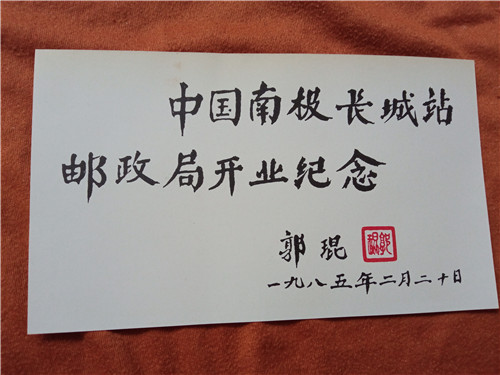 中国南极长城站
邮政局开业纪念
郭琨
郭琨
一九八五年二月二十日